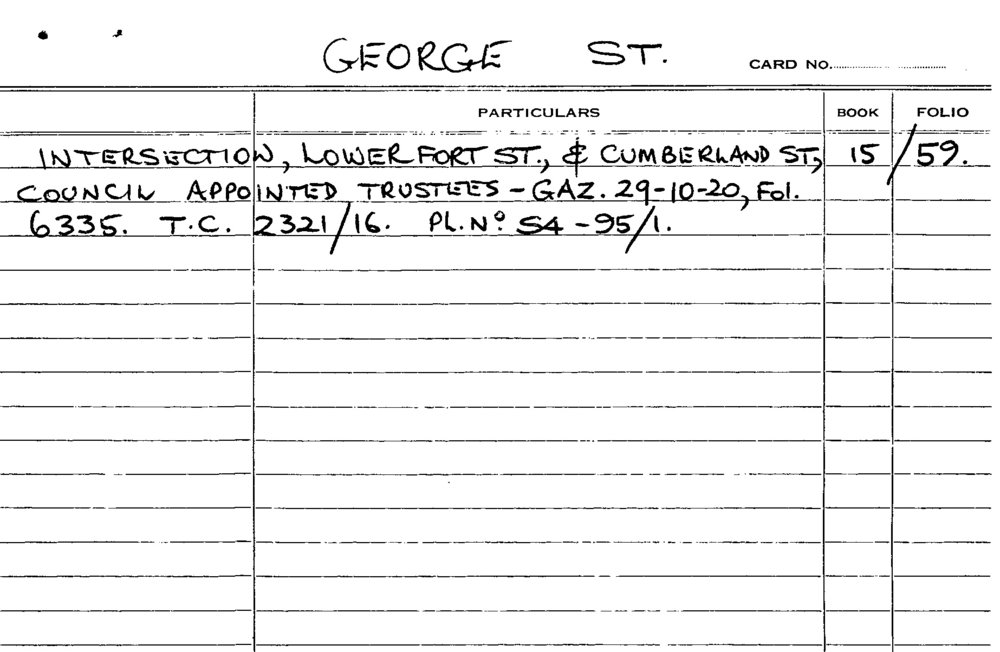 GEORGE ST. CARD NO.
PARTICULARS BOOK FOLIO
INTERSECTION, LOWER FORT ST., & CUMBERLAND ST, 15/59.
COUNCIL APPOINTED TRUSTEES - GAZ. 29-10-20, FOL.
6335. T.C. 2321/16. PL. Nº S4 - 95/1.